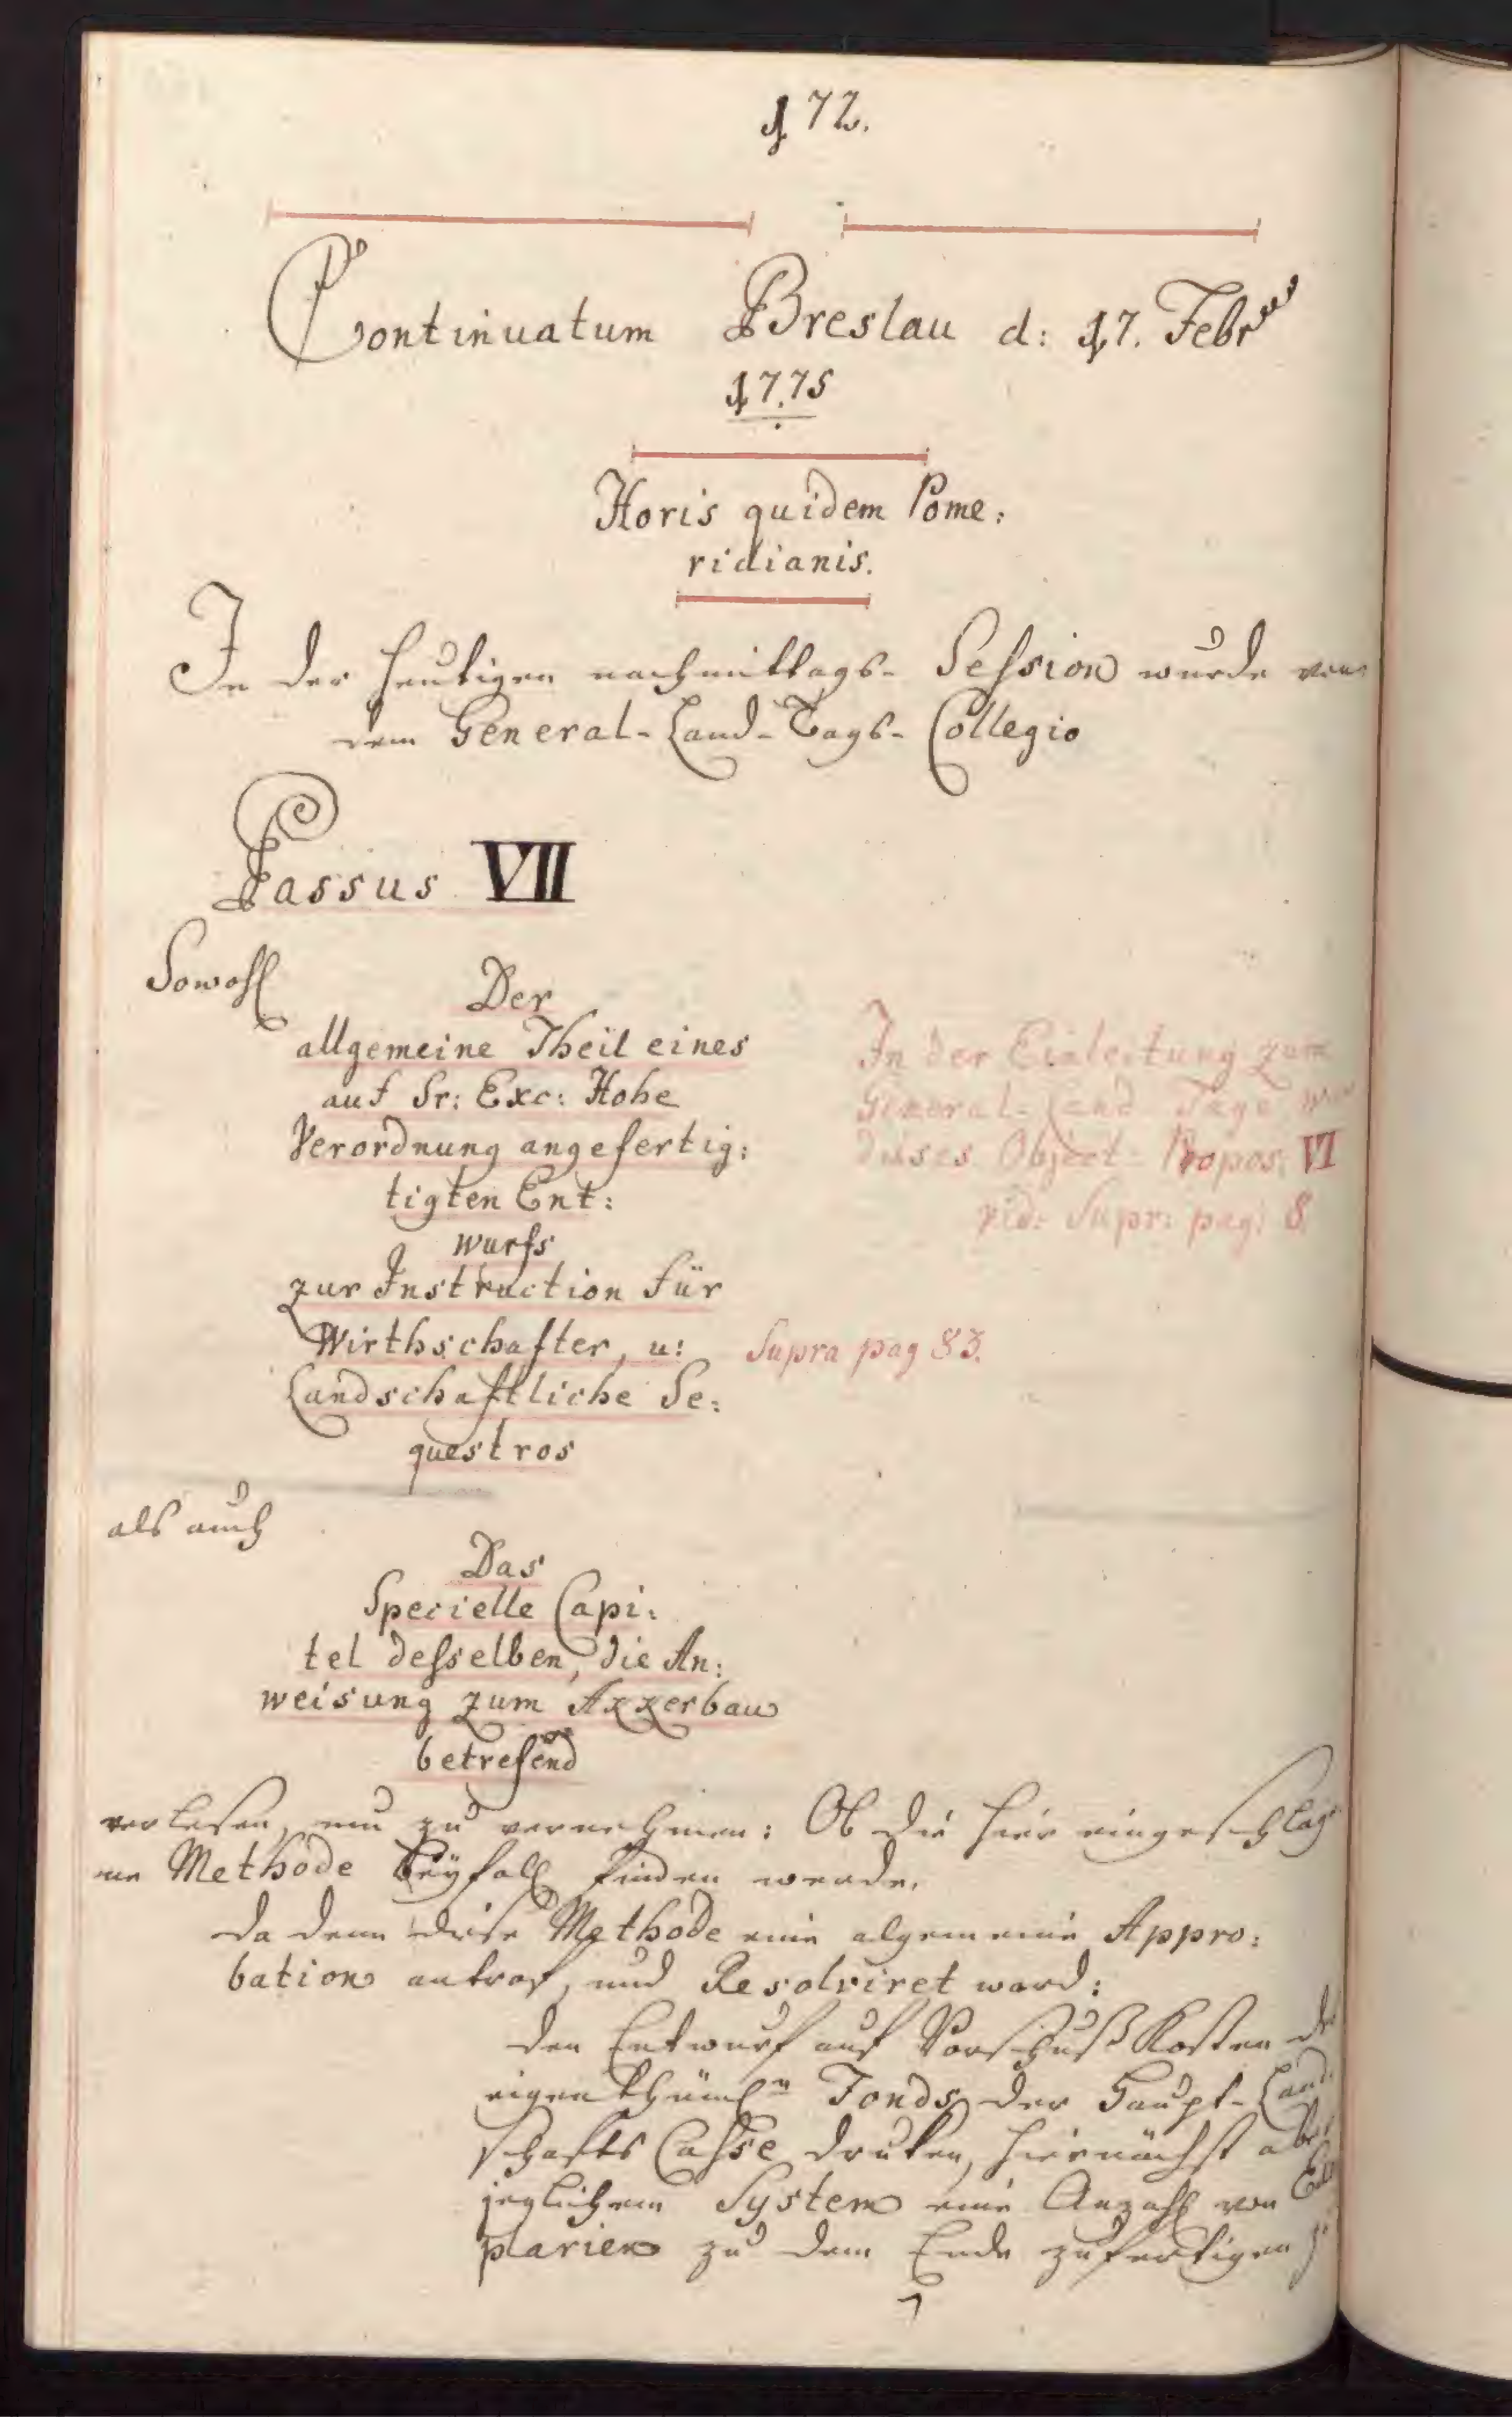 172.
Continuatum Breslau d: 17. Febr
1775
Horis quidem Pome:
ridianis.
In der heutigen nachmittags- Session wurde von
dem General-Land-Tags-Collegio
Passus VII
Sowohl
Der
allgemeine Theil eines
auf Sr: Exc: Hohe
Verordnung angefertig:
tigten Ent:
wurfs
zur Instruction für
Wirthschafter, u:
Landschaftliche Se:
questros
In der Einleitung zum
General-Land-Tage war
dieses Object Propos: VI
vid: Supr: pag: 8
Supra pag 83.
als auch
Das
Specielle Capi:
tel desselben, die An:
weisung zum Akkerbau
betrefend
verlesen, um zu vernehmen: Ob die hier eingeschlag
ne Methode Beyfall finden werde.
Da denn diese Methode eine algemeine Appro:
bation antraf, und Resolviret ward:
den Entwurf auf Vorschuß Kosten
eigenthüml:n Fonds der Haupt-Land
schafts Casse druken, hiernächst aber
jeglichem System eine Anzahl von
plarien zu dem Ende zufertigen